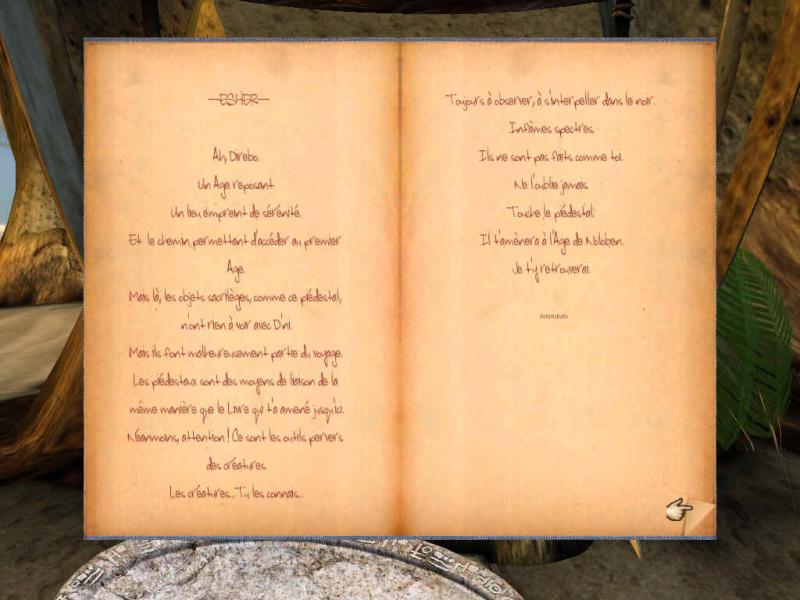 ESHER
Ah, Direbo.
Un Âge reposant.
Un lieu empreint de sérénité.
Et le chemin permettant d'accéder au premier
Âge.
Mais là, les objets sacrilèges, comme ce piédestal,
n'ont rien à voir avec D'ni.
Mais ils font malheureusement partie du voyage.
Les piédestaux sont des moyens de liaison de la
même manière que le Livre qui t'a amené jusqu'ici.
Néanmoins, attention ! Ce sont les outils pervers
des créatures.
Les créatures... Tu les connais...
Toujours à observer, à s'interpeller dans le noir.
Infâmes spectres.
Ils ne sont pas faits comme toi.
Ne l'oublie jamais.
Touche le piédestal.
Il t'amènera à l'Âge de Noloben.
Je t'y retrouverai.
~~~~~